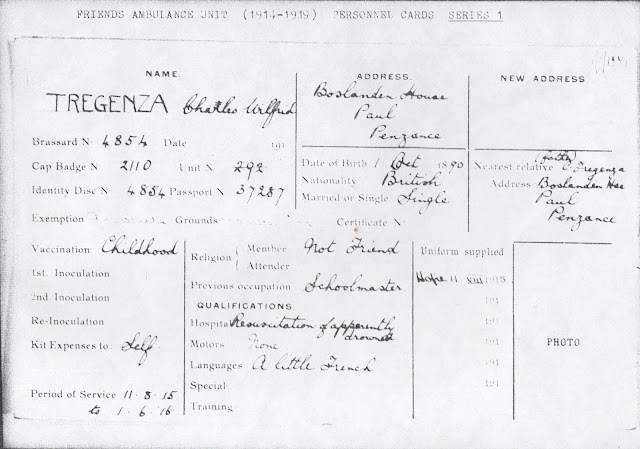 FRIENDS AMBULANCE UNIT (1914-1919) PERSONNEL CARDS SERIES 1
NAME.
TREGENZA Charles Wilfrid
Brassard No 4854 Date 191
Cap Badge No 2110 Unit No 292
Identity Disc No 4854 Passport No 37287
Exemption Grounds Certificate No
ADDRESS.
Boslanden House
Paul
Penzance
Date of Birth 1 Oct 1890
Nationality British
Married or Single Single
NEW ADDRESS
(father)
Nearest relative C. Tregenza
Address Boslanden Hse
Paul
Penzance
Vaccination Childhood
1st. Inoculation
2nd. Inoculation
Re-Inoculation
Kit Expenses to: Self
Period of Service 11.8.15
to 1.6.16
Religion Member Not Friend
Attender
Previous occupation Schoolmaster
QUALIFICATIONS.
Hospital Resuscitation of apparently
drowned
Motors None
Languages A little French
Special
Training
Uniform supplied
Hope 11 VIII 1915
191
191
191
191
PHOTO